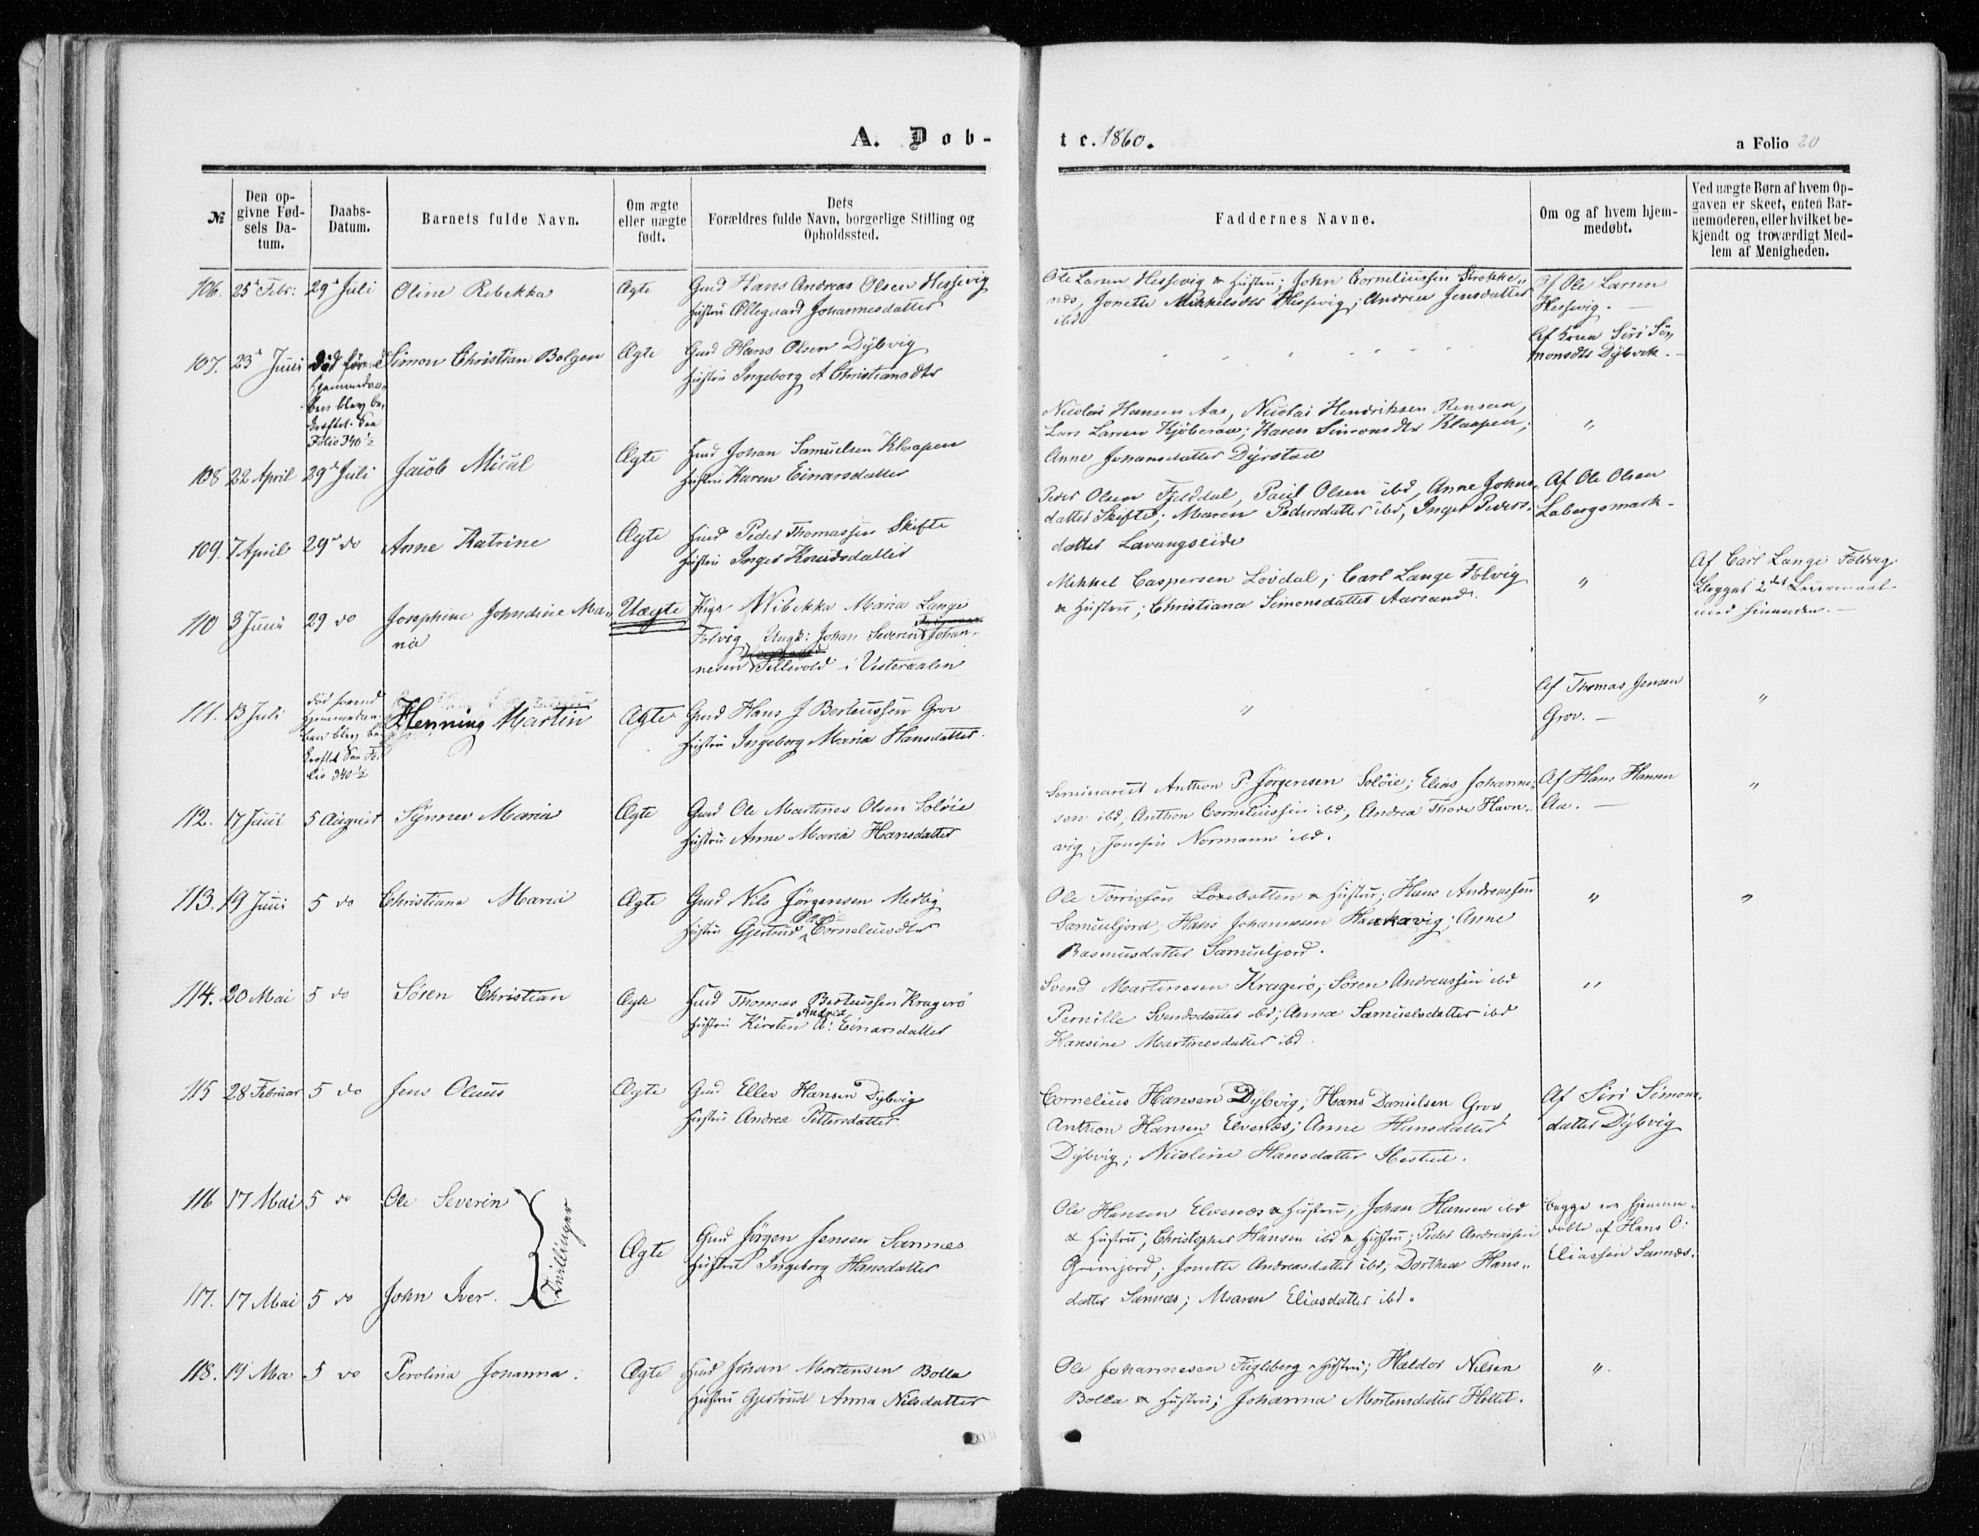 A. Døb-
te. 1860.
a Folio 20
№
Den opgivne Fødsels Datum.
Daabs-Datum.
Barnets fulde Navn.
Om ægte eller uægte født.
Dets Forældres fulde Navn, borgerlige Stilling og Opholdssted.
Faddernes Navne.
Om og af hvem hjemmedøbt.
Ved uægte Børn af hvem Opgaven er skeet, enten Barnemoderen, eller hvilket bekjendt og troværdigt Medlem af Menigheden.
106. 25 Febr: 29 Juli Oline Rebekka Ægte Gmd Hans Andreas Olsen Hessevig
Hustru Ollegaard Johannesdatter
Ole Larsen Hessevig & Hustru; John Corneliussen
Jonette Mikkelsdtr Hessevig; Andrea Jensdatter
ibd
Af Ole Larsen
Hessevig. —
107. 23 Juni død før
Hjemmedaa-
ben blev be-
kræftet. See
Folio 340 ½
Simon Christian Bolgen Ægte Gmd Hans Olsen Dybvig
Hustru Ingeborg A Christiansdtr
Af Siri Si-
monsdtr Dybvik. —
108 22 April 29 Juli Jacob Mical Ægte Hmd Johan Samuelsen Klaapen
Hustru Karen Einarsdatter
Nicolai Hansen Aas, Nicolai Hendriksen Rensaa,
Lars Larsen; Karen Simonsdtr Klaapen;
Anne Johansdatter Dyrstad
"
109. 7 April 29 do Anne Katrine Ægte Hmd Peder Thomassen Skifte
Hustru Inger Knudsdatter
Peder Olsen Fjelddal, Paul Olsen ibd, Anne Johns-
datter Skifte; Maren Pedersdatter ibd, Inger Peders-
datter Lavangseide
Af Ole Olsen
Labergsmark -
110 3 Juni 29 do Josephine Johndine Ma-
ria
Uægte Pige Wibekka Maria Lange
Folvig Ungk: Johan Severin Johan-
nesen Tellevold i Vesteraalen
Mikkel Caspersen Lovdal; Carl Lange Folvig
& Hustru; Christiana Simonsdatter Aarsand.
"
Af Carl Lange Foldvig
Begges 2det Leiermaal
med hinanden. —
111. 13 Juli død forend
Hjemmedaa-
ben blev be-
kræftet See Fo-
lio 340 ½
Henning Martin Ægte Gmd Hans J Berteussen Grov
Hustru Ingeborg Maria Hansdatter.
"
Af Thomas Jensen
Grov. —
"
112. 17 Juni 5 August Synnev Maria Ægte Gmd Ole Martines Olsen Soløie
Hustru Anne Maria Hansdatter
Seminarist Anthon P Jørgensen Soløie; Elias Johanne-
sen ibd, Anthon Corneliussen ibd, Andrea Thode Havn-
vig, Josefin Normann ibd.
Af Hans Hansen
Aa. —
"
113. 19 Juni 5 do Christiana Maria Ægte Gmd Nils Jørgensen Medby
Hustru Gjertrud Corneliusdtr
Ole Torrissen Loxebotten & Hustru; Hans Andreassen
Samueljord; Hans Johannesen Haukavig; Anne
Rasmusdatter Samueljord.
"
"
114. 20 Mai 5 do Søren Christian Ægte Hmd Thomas Berteussen Kragerø
Hustru Kirsten Andrea A: Einarsdatter
Svend Martinesen Kragerø; Søren Andreassen ibd
Pernille Svendsdatter ibd; Anna Samuelsdatter ibd
Hansine Martinesdatter ibd.
"
115 28 Februar 5 do Jens Oluus Ægte Gmd Eller Hansen Dybvig
Hustru Andrea Pettersdatter
Cornelius Hansen Dybvig; Hans Danielsen Grov
Anthon Hansen Elvenes; Anne Hansdatter
Dybvig; Nicoline Hansdatter Ibestad.
Af Siri Simons-
datter Dybvig
116 17 Mai 5 do Ole Severin
Tvillinger
Ægte Gmd Jørgen Jensen Sannes
Hustru Ingeborg Hansdatter
117. 17 Mai 5 do John Iver.
Ole Hansen Elvenæs & Hustru; Johan Hansen ibd
& Hustru; Christopher Hansen ibd & Hustru; Peder Andreassen
Grimjord; Jonetta Andreasdatter ibd; Dorthea Hans-
datter Sannes; Maren Eliasdatter ibd.
begge ere hjemme-
døbte af Hans O:
Eliassen Sannes.
118. 19 Mai 5 do Perolina Johanna. Ægte Hmd Johan Mortensen Bolla
Hustru Gjertrud Anna Nilsdatter
Ole Johannesen Fugleberg & Hustru; Haldor Nilsen
Bolla & Hustru; Johanna Mortensdatter Holtet.
"